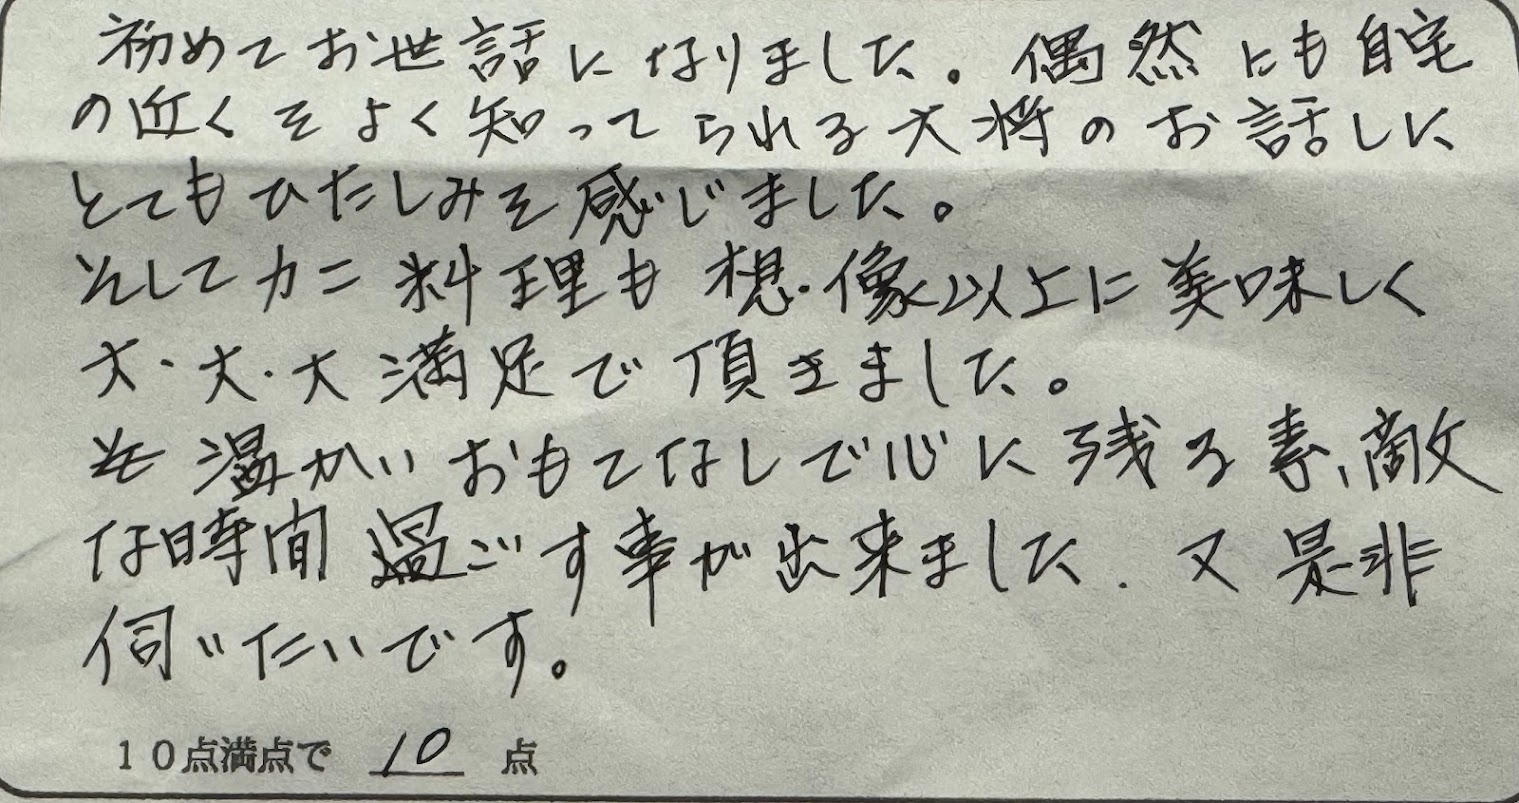 初めてお世話になりました。偶然にも自宅
の近くをよく知ってられる大将のお話しに
とてもひたしみを感じました。
そしてカニ料理も想像以上に美味しく
大・大・大満足で頂きました。
温かいおもてなしで心に残る素敵
な時間過ごす事が出来ました. 又是非
伺いたいです。
10点満点で 10 点